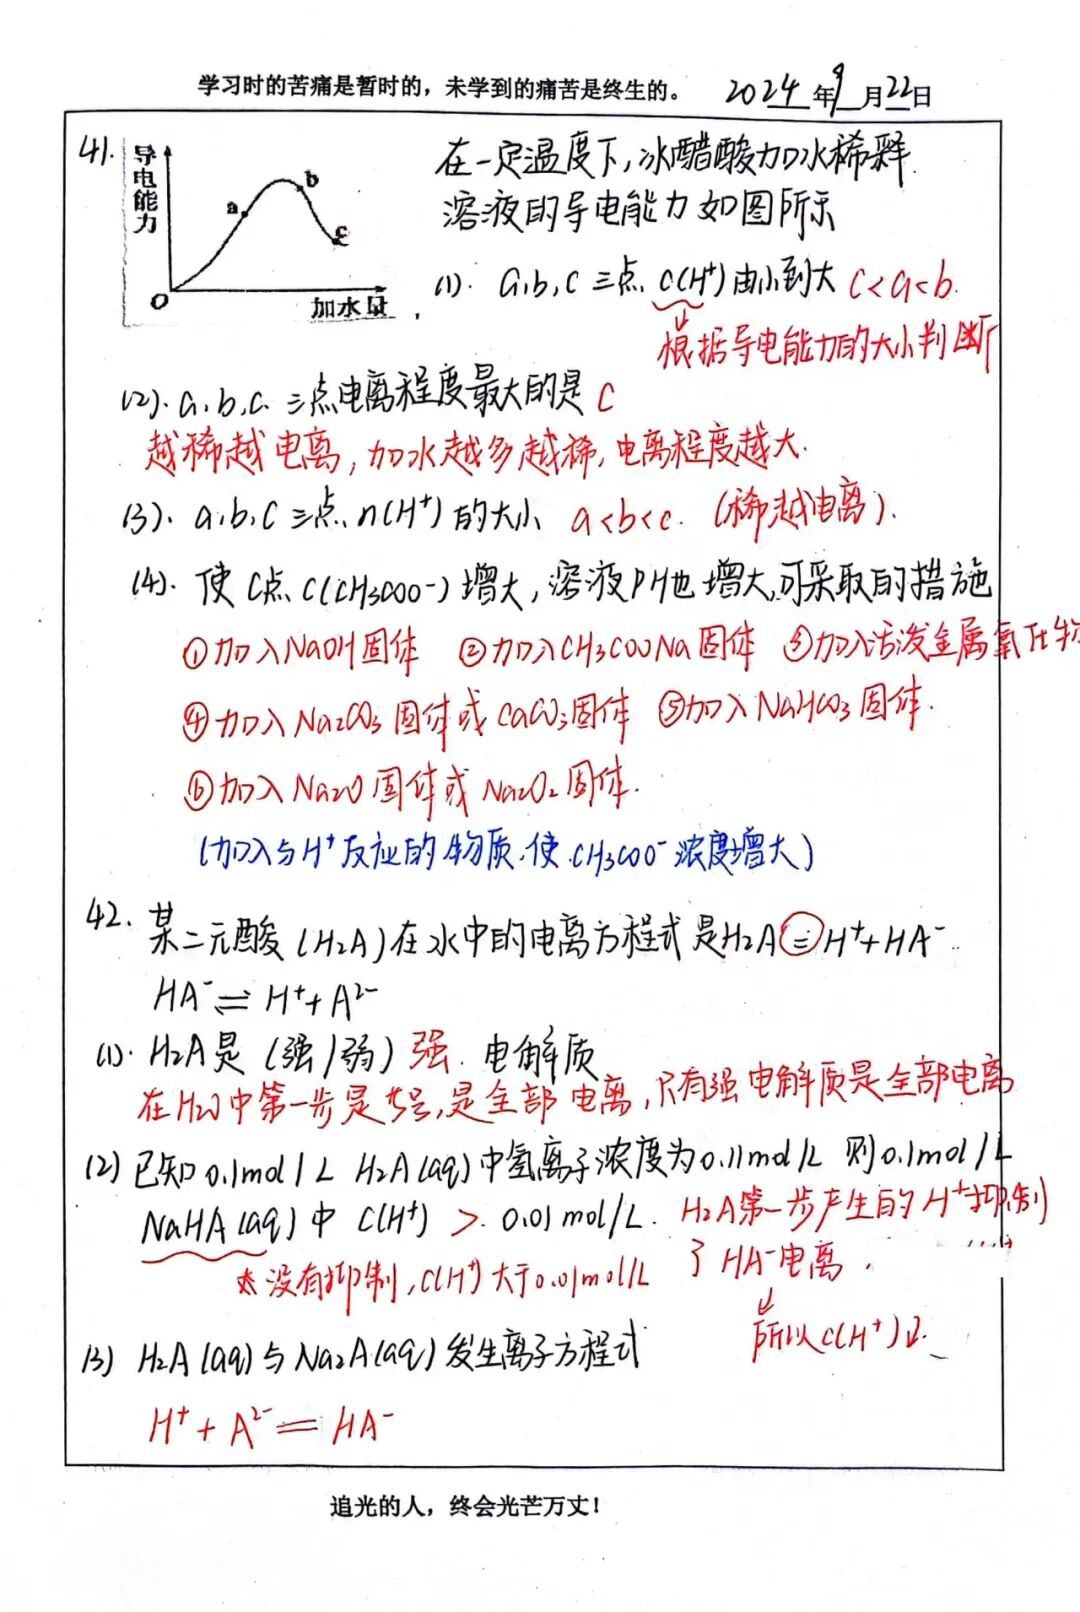 学习时的苦痛是暂时的，未学到的痛苦是终生的。 2024年9月22日
41.
导电能力
a
b
c
O
加水量
在一定温度下,冰醋酸加水稀释
溶液的导电能力如图所示
(1). a,b,c 三点 c(H⁺)由小到大 c<a<b.
根据导电能力的大小判断
(2). a,b,c 三点电离程度最大的是 c
越稀越电离,加水越多越稀,电离程度越大.
(3). a,b,c三点 n(H⁺)的大小 a<b<c. (稀越电离).
(4). 使 c点 c(CH₃COO⁻)增大,溶液PH也增大,可采取的措施
①加入NaOH固体 ②加入CH₃COONa固体 ③加入活泼金属氧化物
④加入Na₂CO₃固体或CaCO₃固体 ⑤加入NaHCO₃固体.
⑥加入Na₂O固体或Na₂O₂固体.
(加入与H⁺反应的物质.使CH₃COO⁻浓度增大)
42. 某二元酸(H₂A)在水中的电离方程式是H₂A=H⁺+HA⁻.
HA⁻⇌H⁺+A²⁻
(1). H₂A是(强/弱)强.电解质
在H₂O中第一步是"="号,是全部电离,只有强电解质是全部电离
(2)已知0.1mol/L H₂A(aq)中氢离子浓度为0.11mol/L 则0.1mol/L
NaHA(aq)中 c(H⁺) > 0.01mol/L. H₂A第一步产生的H⁺抑制
没有抑制,c(H⁺)大于0.01mol/L 了HA⁻电离.
所以c(H⁺)↓.
(3) H₂A(aq)与Na₂A(aq)发生离子方程式
H⁺+A²⁻=HA⁻
追光的人，终会光芒万丈！